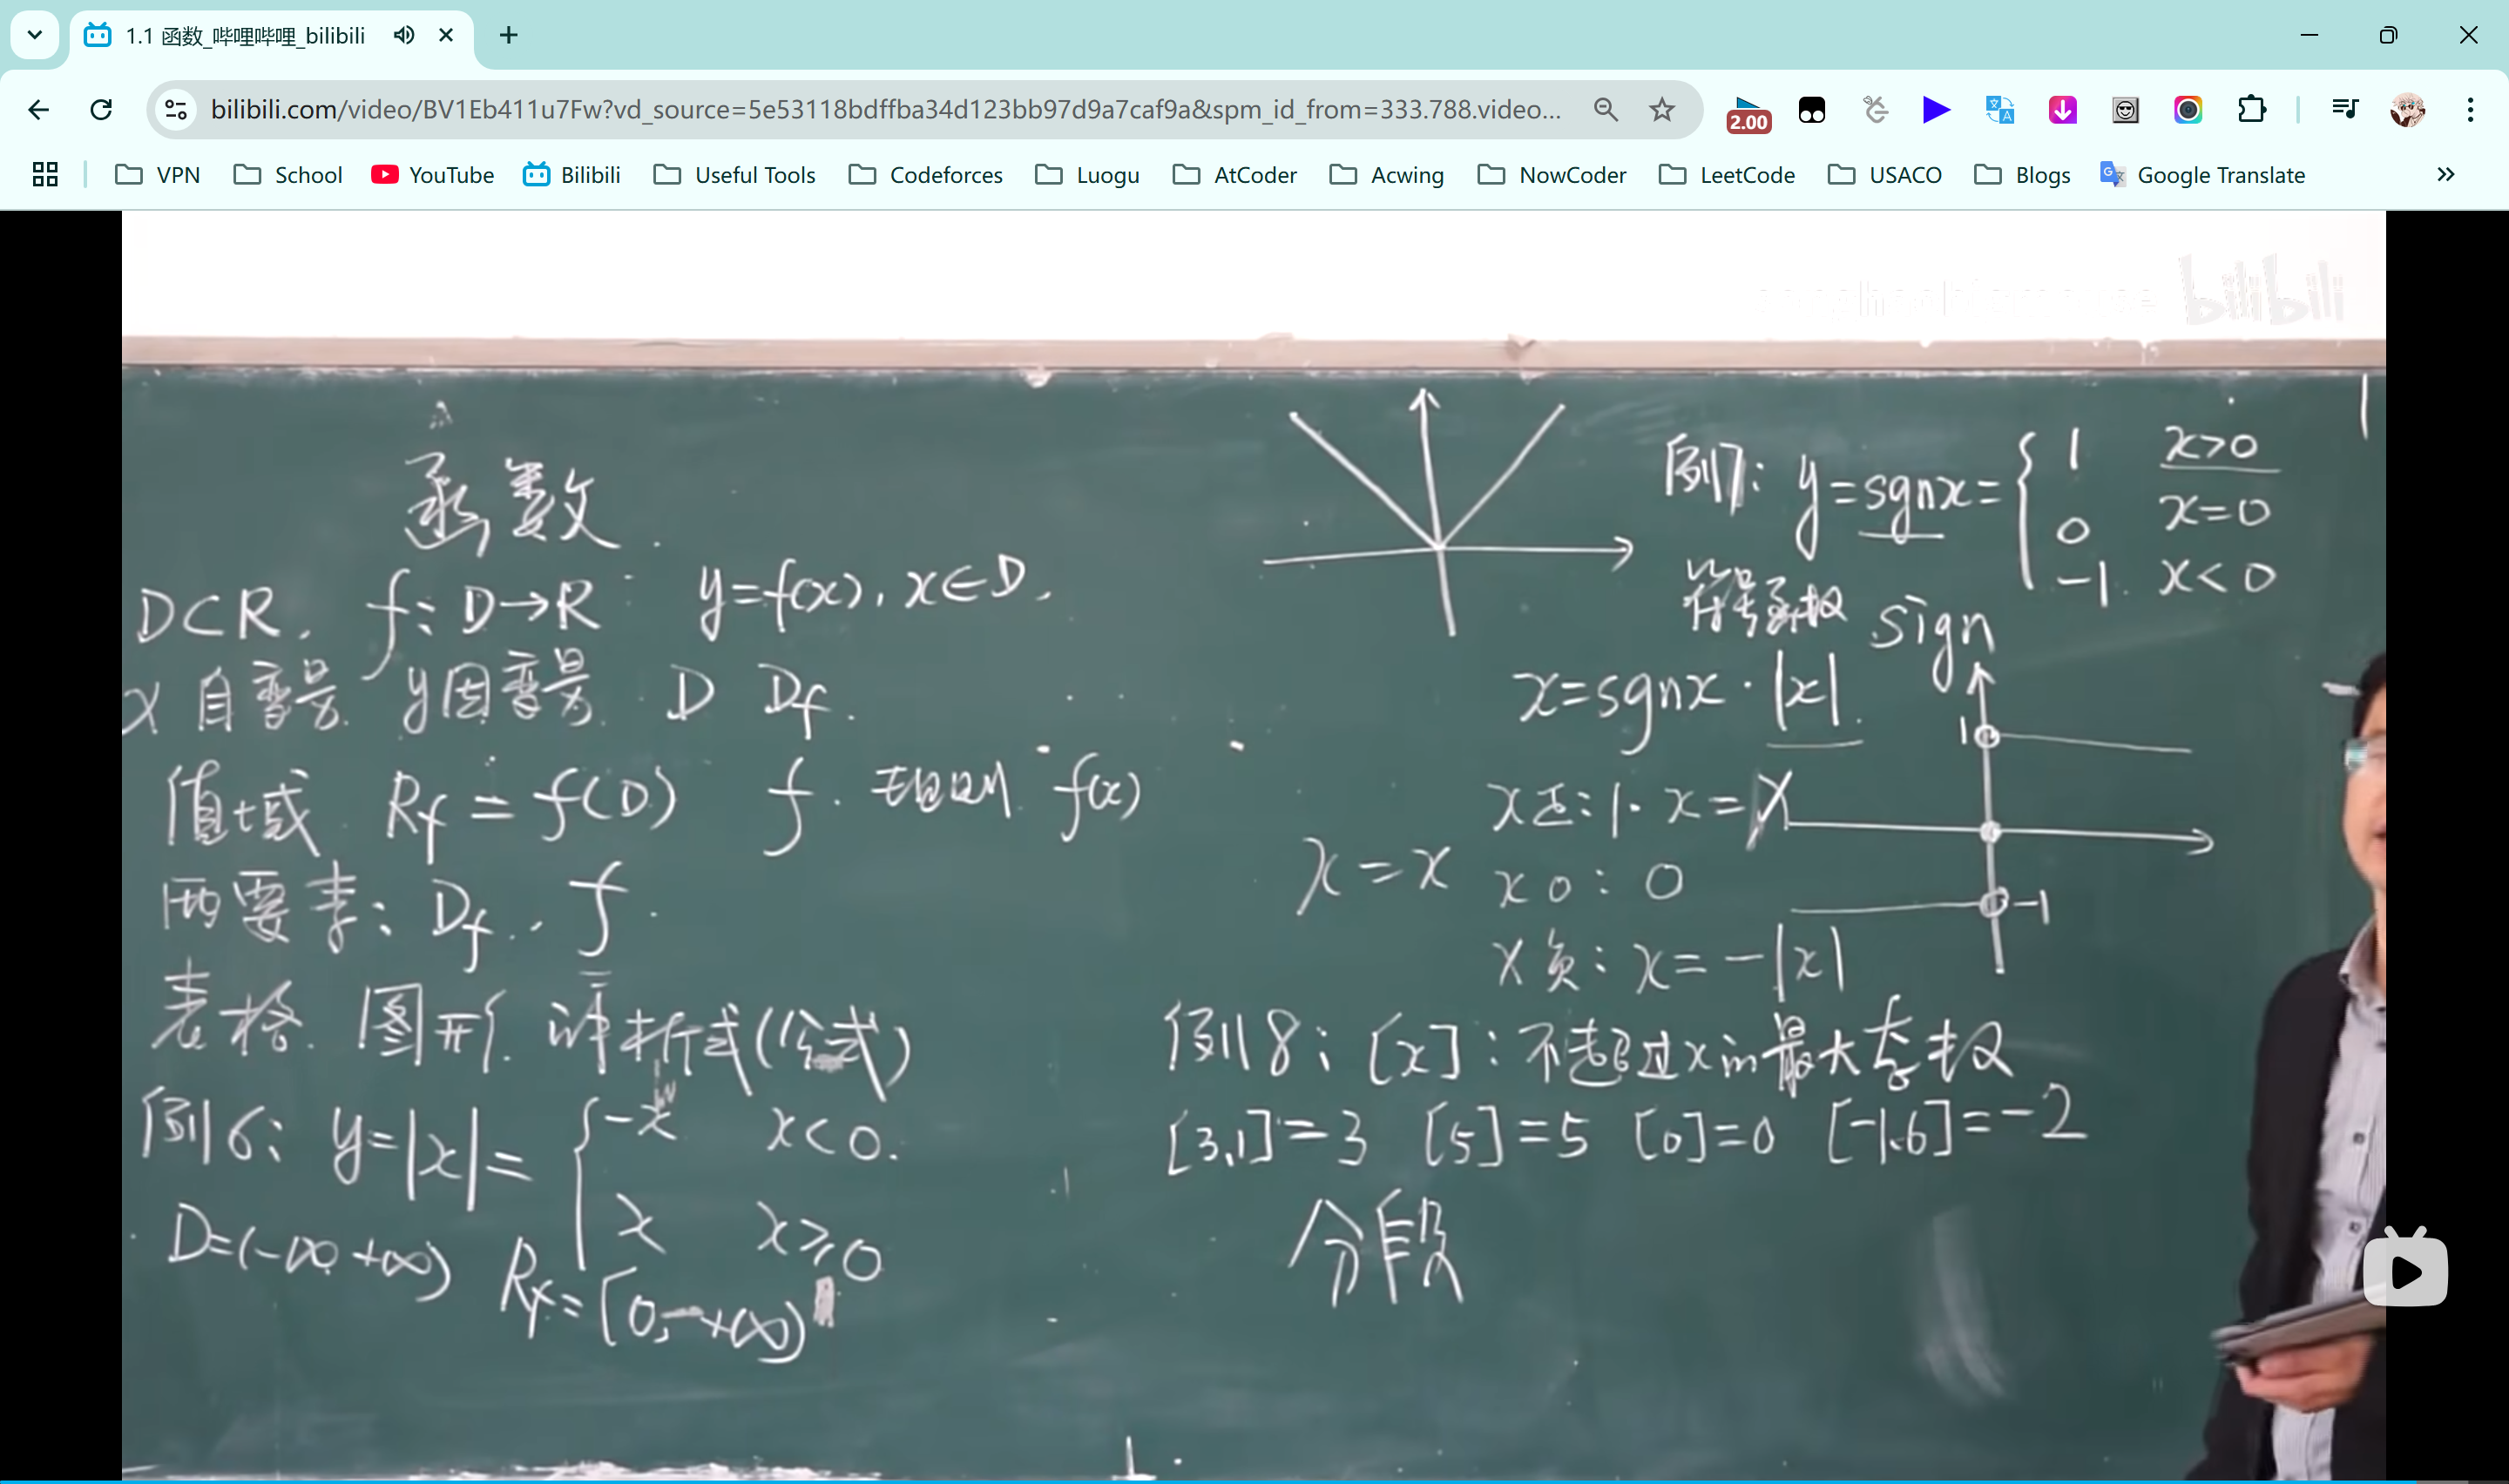 1.1 函数_哔哩哔哩_bilibili
bilibili.com/video/BV1Eb411u7Fw?vd_source=5e53118bdffba34d123bb97d9a7caf9a&spm_id_from=333.788.video...
2.00
VPN School YouTube Bilibili Useful Tools Codeforces Luogu AtCoder Acwing NowCoder LeetCode USACO Blogs Google Translate
bilibili
函数
D⊂R, f: D→R y=f(x), x∈D,
x 自变量 y因变量 D Df.
值域 Rf = f(D) f. 规则 f(x)
两要素: Df, f.
表格. 图形. 解析式(公式)
例6: y=|x|= { -x x<0.
x x≥0
D=(-∞, +∞) Rf=[0, +∞)
例7: y=sgnx= { 1 x>0
0 x=0
-1. x<0
符号函数 sign
x=sgnx·|x|.
x正: 1·x=x
x=x
x 0: 0
x负: x=-|x|
1
-1
例8: [x]: 不超过x的最大整数
[3.1]=3 [5]=5 [0]=0 [-1.6]=-2
分段